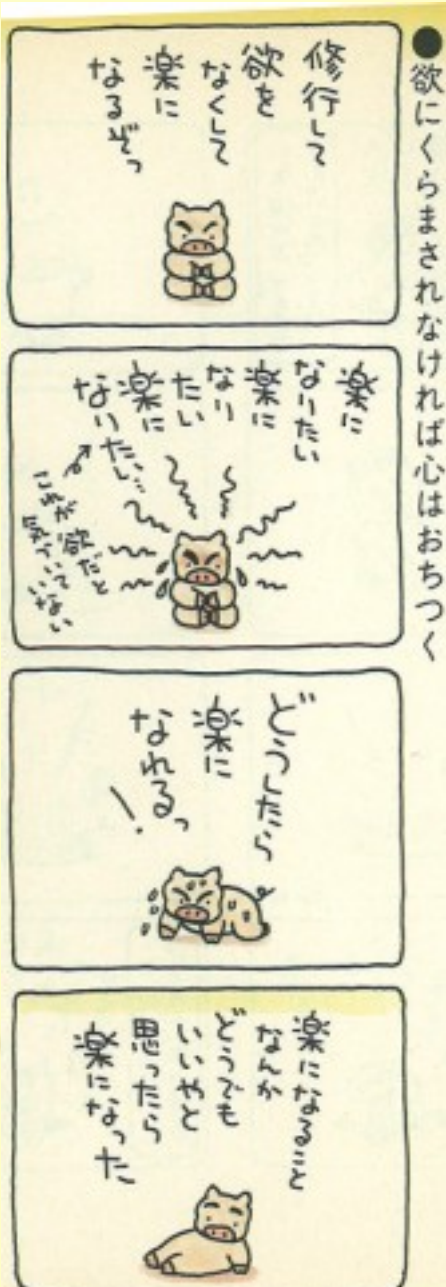 ●欲にくらまされなければ心はおちつく
修行して
欲を
なくして
楽に
なるぞっ
楽に
なりたい
楽に
なり
たい
楽に
なりたい…
これが欲だと
気づいていない
どうしたら
楽に
なれるっ
!
楽になること
なんか
どうでも
いいやと
思ったら
楽になった